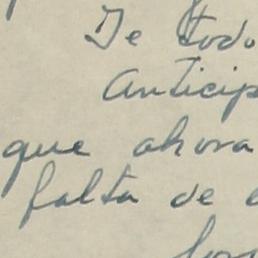 De todo
Anticip
que ahora
falta de